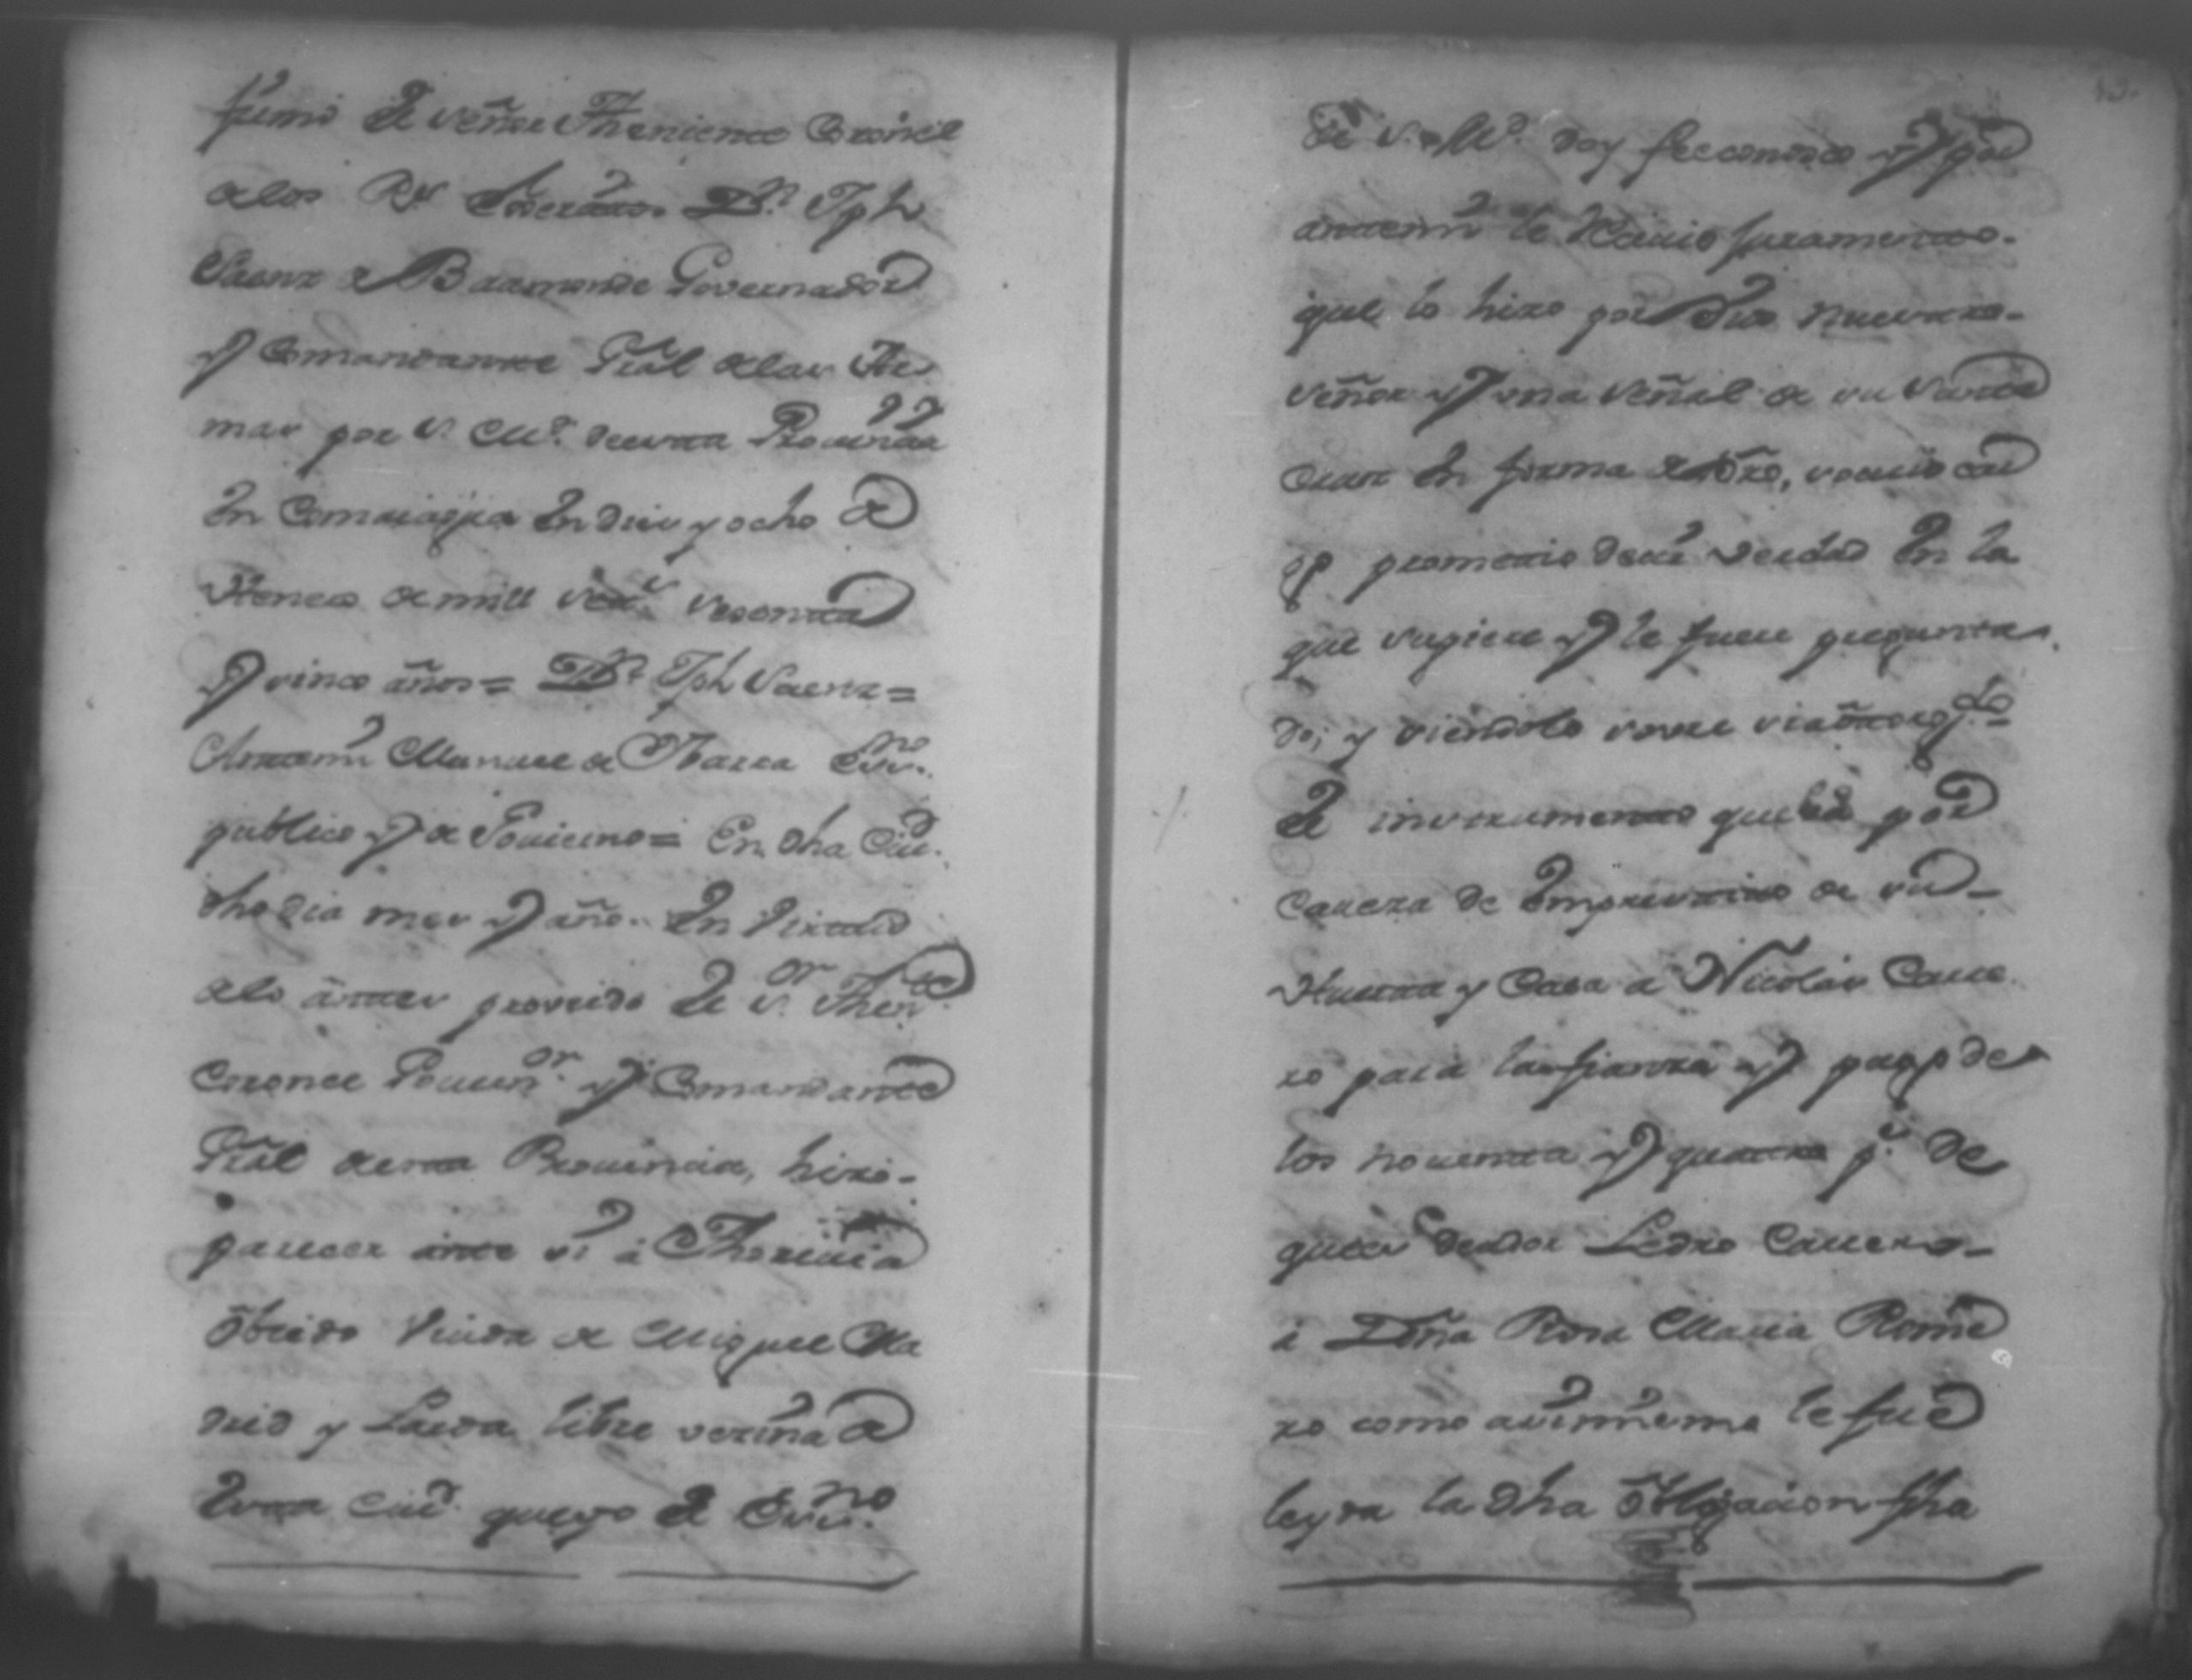 firmo El señor Theniente Coronel
delos Rs Exercitos Dn Jph
Saenz de Baamonde Governador
y Comandante Gral delas Ar
mas por S. Md. desta Provincia
En Comaiagua En diez y ocho de
Henero de mill setts sesenta
y sinco años = Dn Jph Saenz =
Antemi Manuel de Ybarra Essno
publico y de Govierno = En dha Ciud.
dho dia mes y año. En Virtud
delo antes proveido El sor Thente
Coronel Governor y Comandante
Gral desta Provincia, hizo
pareser ante si à Thorivia
Obiedo Viuda de Miguel Ma
drid y Parda libre vesina de
Esta Ciud. que yo El Essno
de S. Md. doy fee conosco y por
antemi le Reciuio Juramento
que lo hizo por Dios nuestro
señor y una señal de su Santa
Cruz En forma de dro, so cuio car
go prometio desir Verdad En lo
que supiere y le fuere pregunta
do; y siendole sobre si a otorgdo
El instrumento que està por
Cauesa de Emprestito de su
Huerta y Casa a Nicolas Caue
ro para la fianza y pago de
los nouenta y quatro ps. de
que es deudor Pedro Cauero
à Doña Rosa Maria Rome
ro como assimismo le fue
leyda la dha obligacion fha